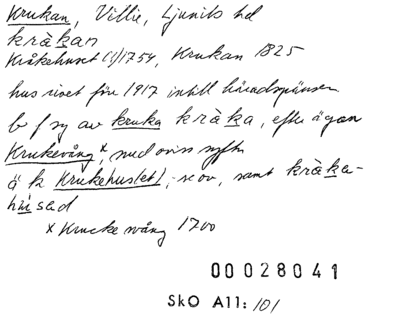 Krukan, Villie, Ljunits hd
kràkan
Kråkehuset (!) 1754, Krukan 1825
hus rivet före 1917 intill häradsgränsen
b f sg av kruka kràka, efter ägan
Krukevång x, med oviss syftn
ä k Krukehus(et), se ov, samt kràka-
husad
x Krucke wång 1700
00028041
SkO A11: 101